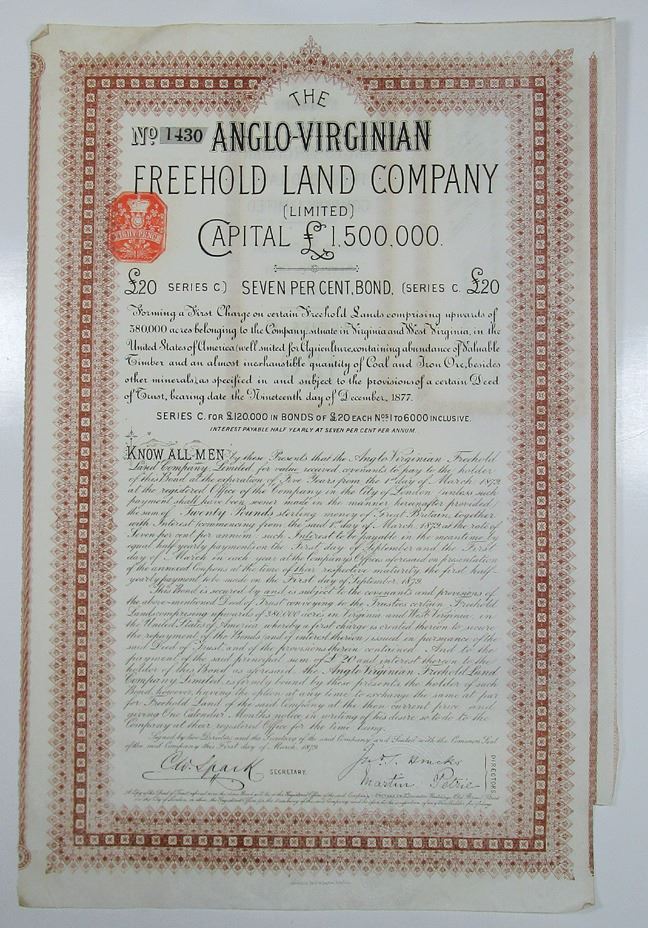 THE
No. 1430 ANGLO-VIRGINIAN
FREEHOLD LAND COMPANY
(LIMITED)
CAPITAL £1,500,000.
£20 SERIES C) SEVEN PER CENT, BOND, (SERIES C. £20
Forming a First Charge on certain Freehold Lands comprising upwards of
380,000 acres belonging to the Company, situate in Virginia and West Virginia, in the
United States of America (well suited for Agriculture, containing abundance of Valuable
Timber and an almost inexhaustible quantity of Coal and Iron Ore, besides
other minerals), as specified in and subject to the provisions of a certain Deed
of Trust, bearing date the Nineteenth day of December, 1877.
SERIES C. FOR £120,000 IN BONDS OF £20 EACH Nos 1 TO 6000 INCLUSIVE.
INTEREST PAYABLE HALF YEARLY AT SEVEN PER CENT PER ANNUM.
KNOW ALL MEN by these Presents that the Anglo Virginian Freehold
Land Company Limited for value received covenants to pay to the holder
of this Bond at the expiration of Five Years from the 1st day of March 1879
at the registered Office of the Company in the City of London (unless such
payment shall have been sooner made in the manner hereinafter provided)
the sum of Twenty Pounds sterling money of Great Britain, together
with Interest (commencing from the said 1st day of March 1879 at the rate of
Seven per cent per annum such Interest to be payable in the meantime by
equal half yearly payments on the First day of September and the First
day of March in each year at the Company's Office aforesaid on presentation
of the annexed Coupons at the time of their respective maturity the first half-
yearly payment to be made on the First day of September 1879.
This Bond is secured by and is subject to the covenants and provisions of
the above-mentioned Deed of Trust conveying to the Trustees certain Freehold
Land comprising upwards of 380,000 acres in Virginia and West Virginia, in
the United States of America whereby a first charge is created thereon to secure
the repayment of the Bonds and of interest thereon issued in pursuance of the
said Deed of Trust and of the provisions therein contained And to the
payment of the said principal sum of £20 and interest thereon to the
holder of this Bond as aforesaid the Anglo Virginian Freehold Land
Company Limited is firmly bound by these presents the holder of such
Bond, however, having the option at any time to exchange the same at par
for Freehold Land of the said Company at the then current price and
giving One Calendar Months notice in writing of his desire so to do to the
Company at their registered Office for the time being.
Signed by two Directors and the Secretary of the said Company and Sealed with the Common Seal
of the said Company this First day of March, 1879
C.W. Spark SECRETARY.
Martin Petrie DIRECTORS